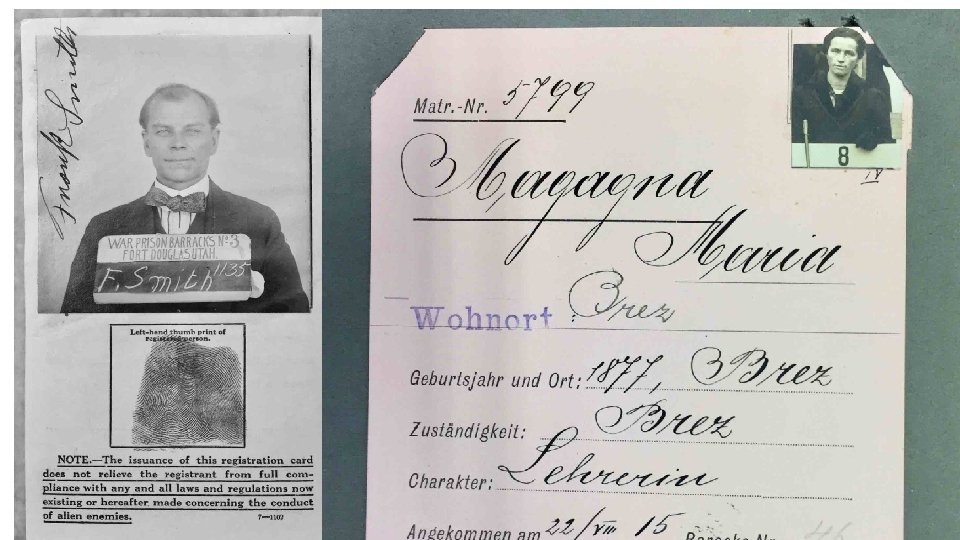 Frank Smith
WAR PRISON BARRACKS No 3
FORT DOUGLAS UTAH.
F. Smith 1135
Left-hand thumb print of
registered person.
NOTE.—The issuance of this registration card
does not relieve the registrant from full com-
pliance with any and all laws and regulations now
existing or hereafter made concerning the conduct
of alien enemies.
7—1102
8
IV
Matr.-Nr. 5799
Magagna
Maria
Wohnort : Brez
Geburtsjahr und Ort: 1877, Brez
Zuständigkeit: Brez
Charakter: Lehrerin
Angekommen am 22/VIII 15 Baracke Nr.